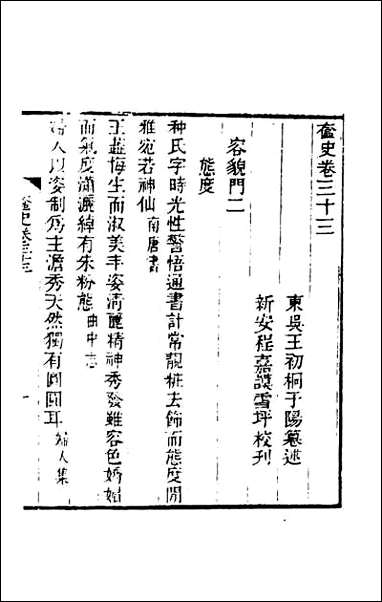 奩史卷三十三
東吳王初桐于陽纂述
新安程嘉謨雪坪校刊
容貌門二
態度
种氏字時光性警悟通書計常靚粧去飾而態度閒
雅宛若神仙南唐書
王悔生而淑美丰姿清麗精神秀發雖容色婚媚
而氣度瀟灑綽有朱粉態曲中志
婦人以姿制爲主澹秀天然獨有圓圓耳婦人集
奩史卷三十三
一